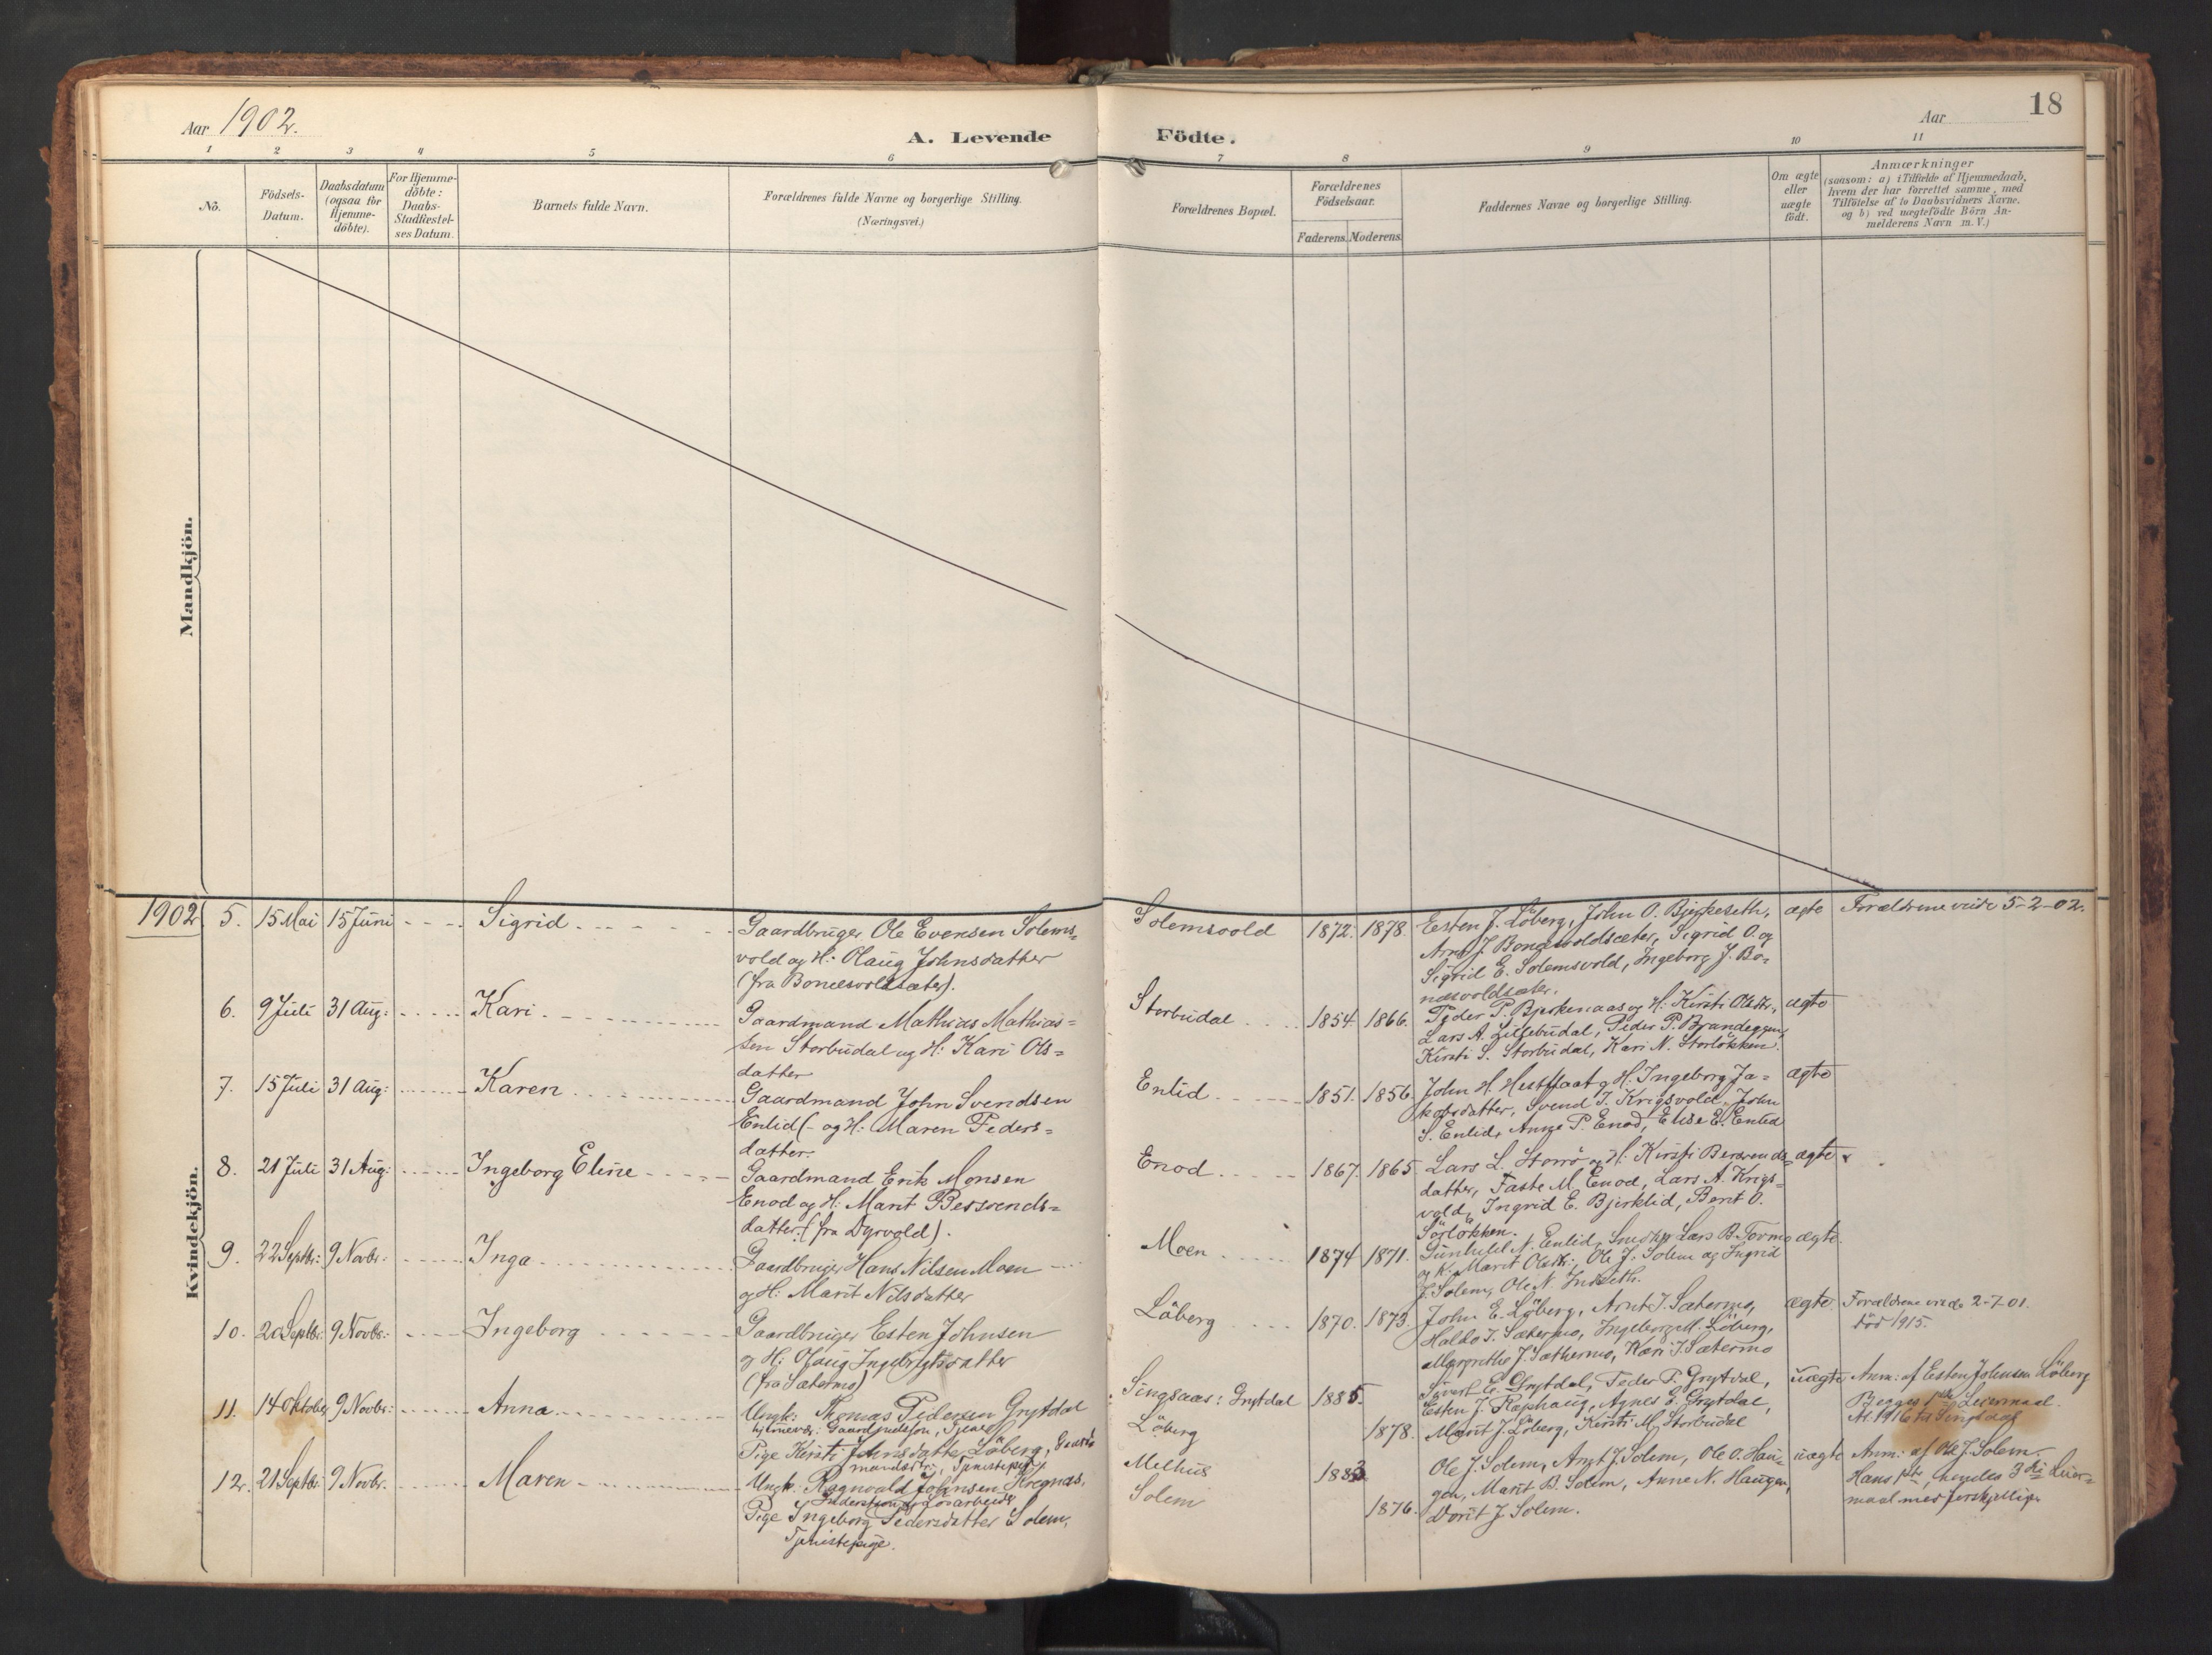 Aar 1902.
A. Levende Födte.
Aar
18
1 2 3 4 5 6 7 8 9 10 11
No.
Födsels-
Datum.
Daabsdatum
(ogsaa for
Hjemme-
döbte).
For Hjemme-
döbte:
Daabs-
Stadfæstel-
ses Datum.
Barnets fulde Navn.
Forældrenes fulde Navne og borgerlige Stilling.
(Næringsvei.)
Forældrenes Bopæl.
Forældrenes
Födselsaar.
Faderens. Moderens.
Faddernes Navne og borgerlige Stilling.
Om ægte
eller
uægte
födt.
Anmærkninger
(saasom: a) i Tilfælde af Hjemmedaab,
hvem der har forrettet samme, med
Tilföielse af to Daabsvidners Navne.
og b) ved uægtefödte Börn An-
melderens Navn m. V.)
Mandkjön.
Kvindekjön.
1902
5. 15 Mai 15 Juni Sigrid
Gaardbruger Ole Evensen Solems=
vold og H: Olaug Johnsdatter
(fra Bonesvoldsæter).
Solemsvold 1872. 1878.
Esten J. Löberg, John O. Bjerkeseth,
Arnt J. Bonesvoldsæter, Sigrid O. og
Sigrid E. Solemsvold, Ingeborg J. Bo-
nesvoldsæter.
ægte
Forældrene viede 5-2-02.
6. 9 Juli 31 Aug: Kari
Gaardmand Mathias Mathias=
sen Storbudal og H: Kari Ols=
datter
Storbudal 1854. 1866.
Peder P. Bjerkenaas og H. Kirsti Olsdtr.,
Lars A. Lillebudal, Peder P. Brandeggen,
Kirsti S. Storbudal, Kari N. Storløkken.
ægte
7. 15 Juli 31 Aug: Karen
Gaardmand John Svendsen
Enlid (- og H: Maren Peders=
datter.
Enlid 1851. 1856.
John H. Hestflaat og H: Ingeborg Ja=
kobsdatter, Svend J. Krigsvold, John
S. Enlid, Anne P. Enod, Elise E. Enlid
ægte
8. 21 Juli 31 Aug: Ingeborg Eline
Gaardmand Erik Monsen
Enod og H: Marit Bersvends=
datter. (fra Dyrvold).
Enod 1867. 1865
Lars L. Storrö og H: Kirsti Bersvends=
datter, Faste M. Enod, Lars A. Krigs=
vold, Ingrid E. Bjerklid, Berit O.
Sörløkken.
ægte
9. 22 Septbr: 9 Novbr: Inga
Gaardbruger Hans Nilsen Moen
og H: Marit Nilsdatter
Moen 1874 1871.
Gunhild N. Enlid, Lars B. Tormo
og K. Marit Olsdtr., Ole J. Solem og Ingrid
J. Solem, Ole N. Indseth.
ægte.
10. 20 Septbr: 9 Novbr: Ingeborg
Gaardbruger Esten Johnsen
og H: Olaug Ingebrigtsdatter
(fra Sætermo)
Löberg 1870. 1873.
John E. Löberg, Arnt J. Sætermo,
Haldo I. Sætermo, Ingeborg M. Löberg,
Margrethe J. Sæthermo, Kari I. Sætermo
ægte.
Forældrene viede 2-7-01.
död 1915.
11. 14 Oktober 9 Novbr: Anna
Ungk: Thomas Pedersen Grytdal
Pige Kirsti Johnsdatter Löberg, Gaard=
mandsdtr., Tjenestepige
Singsaas: Grytdal 1885.
Löberg 1878.
Sivert E. Grytdal, Peder P. Grytdal,
Esten J. Raphaug, Agnes E. Grytdal,
Marit J. Löberg, Kirsti M. Storbudal
uægte
Anm: af Esten Johnsen Löberg
Begges 1ste Leiermaal.
At. 1916 til Singsaas
12. 21 Septbr: 9 Novbr. Maren
Ungk: Ragnvald Johnsen Kregnæs,
Pige Ingeborg Pedersdatter Solem,
Tjenestepige.
Melhus 1883
Solem 1876.
Ole J. Solem, Arnt J. Solem, Ole O. Hau=
gen, Marit B. Solem, Anne N. Haugen,
Dorit J. Solem.
uægte
Anm: af Ole J. Solem.
Hans 1ste, hendes 3die Leier=
maal med forskjellige